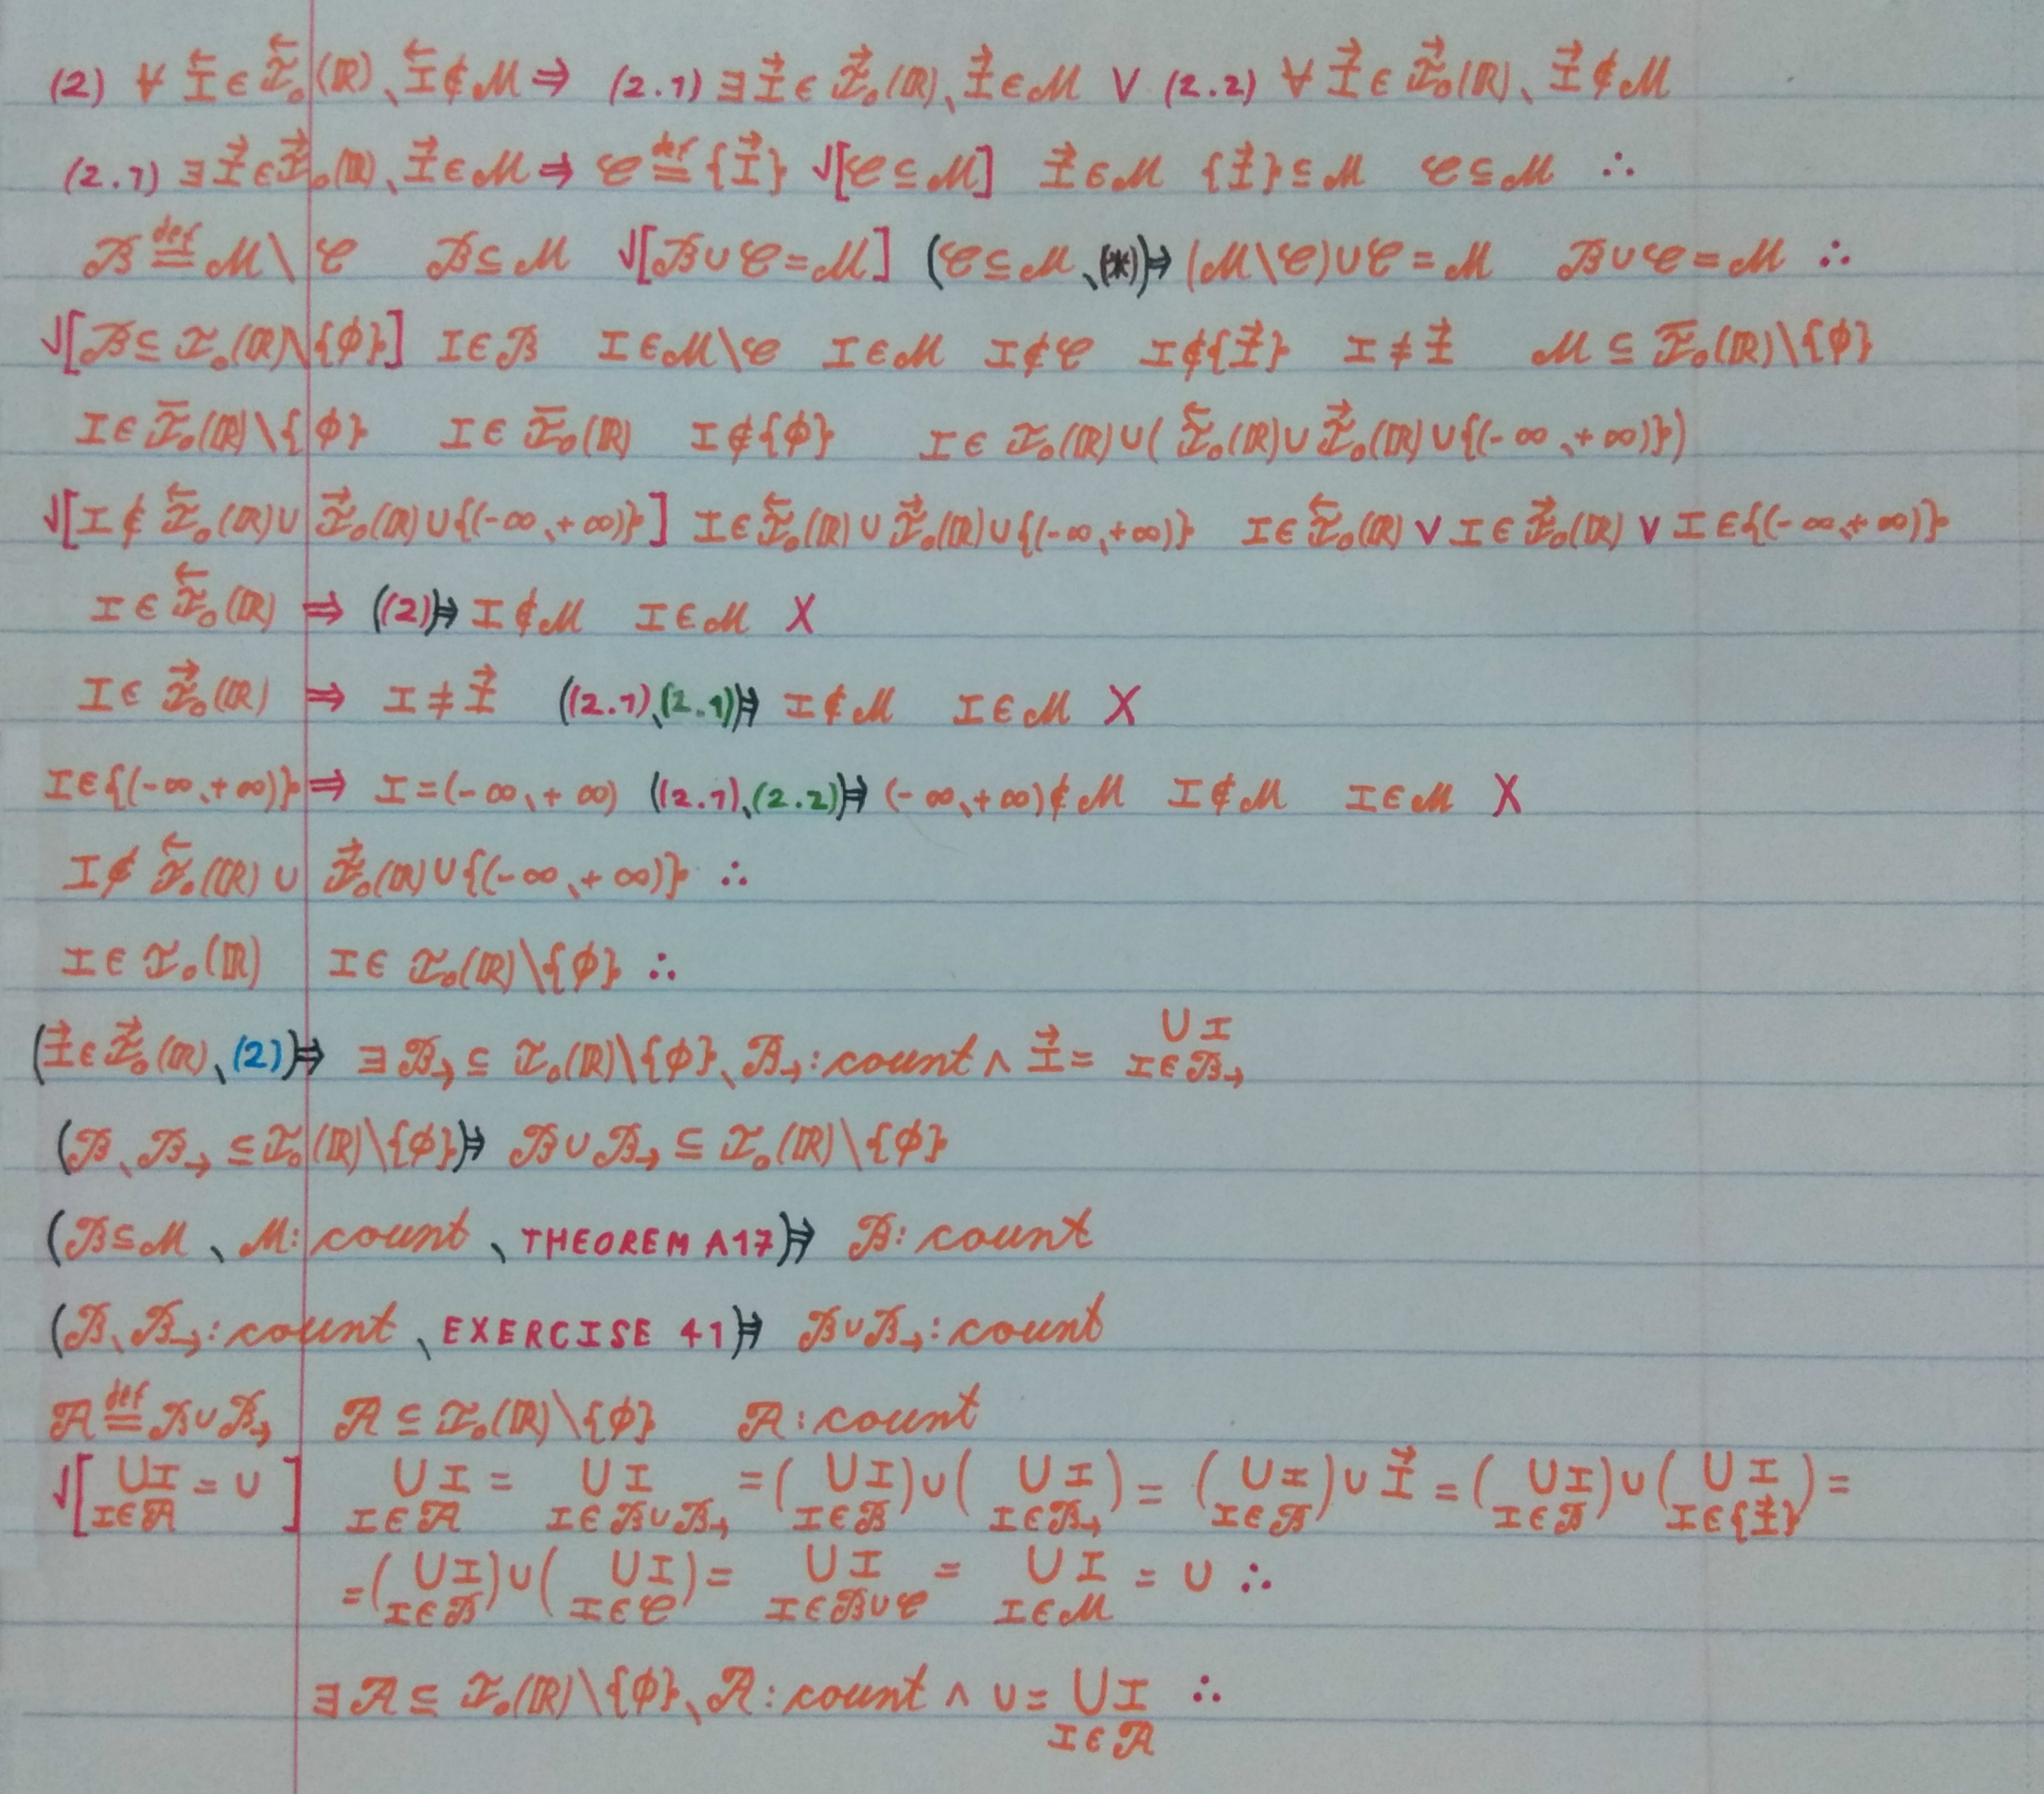 (2) ∀ I⃖ ∈ ℐ⃖₀(ℝ)、I⃖ ∉ ℳ ⇒ (2.1) ∃ I⃗ ∈ ℐ⃗₀(ℝ)、I⃗ ∈ ℳ ∨ (2.2) ∀ I⃗ ∈ ℐ⃗₀(ℝ)、I⃗ ∉ ℳ
(2.1) ∃ I⃗ ∈ ℐ⃗₀(ℝ)、I⃗ ∈ ℳ ⇒ 𝒞 ≝ {I⃗} √[𝒞 ⊆ ℳ] I⃗ ∈ ℳ {I⃗} ⊆ ℳ 𝒞 ⊆ ℳ ∴
ℬ ≝ ℳ \ 𝒞 ℬ ⊆ ℳ √[ℬ ∪ 𝒞 = ℳ] (𝒞 ⊆ ℳ、(*))⇒ (ℳ \ 𝒞) ∪ 𝒞 = ℳ ℬ ∪ 𝒞 = ℳ ∴
√[ℬ ⊆ ℐ₀(ℝ) \ {ϕ}] I ∈ ℬ I ∈ ℳ \ 𝒞 I ∈ ℳ I ∉ 𝒞 I ∉ {I⃗} I ≠ I⃗ ℳ ⊆ ℐ̅₀(ℝ) \ {ϕ}
I ∈ ℐ̅₀(ℝ) \ {ϕ} I ∈ ℐ̅₀(ℝ) I ∉ {ϕ} I ∈ ℐ₀(ℝ) ∪ (ℐ⃖₀(ℝ) ∪ ℐ⃗₀(ℝ) ∪ {(-∞、+∞)})
√[I ∉ ℐ⃖₀(ℝ) ∪ ℐ⃗₀(ℝ) ∪ {(-∞、+∞)}] I ∈ ℐ⃖₀(ℝ) ∪ ℐ⃗₀(ℝ) ∪ {(-∞、+∞)} I ∈ ℐ⃖₀(ℝ) ∨ I ∈ ℐ⃗₀(ℝ) ∨ I ∈ {(-∞、+∞)}
I ∈ ℐ⃖₀(ℝ) ⇒ ((2))⇒ I ∉ ℳ I ∈ ℳ X
I ∈ ℐ⃗₀(ℝ) ⇒ I ≠ I⃗ ((2.1)、(2.1))⇒ I ∉ ℳ I ∈ ℳ X
I ∈ {(-∞、+∞)} ⇒ I = (-∞、+∞) ((2.1)、(2.2))⇒ (-∞、+∞) ∉ ℳ I ∉ ℳ I ∈ ℳ X
I ∉ ℐ⃖₀(ℝ) ∪ ℐ⃗₀(ℝ) ∪ {(-∞、+∞)} ∴
I ∈ ℐ₀(ℝ) I ∈ ℐ₀(ℝ) \ {ϕ} ∴
(I⃗ ∈ ℐ⃗₀(ℝ)、(2))⇒ ∃ ℬ→ ⊆ ℐ₀(ℝ) \ {ϕ}、ℬ→ : count ∧ I⃗ = ∪ I
I ∈ ℬ→
(ℬ、ℬ→ ⊆ ℐ₀(ℝ) \ {ϕ})⇒ ℬ ∪ ℬ→ ⊆ ℐ₀(ℝ) \ {ϕ}
(ℬ ⊆ ℳ、ℳ : count、THEOREM A17)⇒ ℬ : count
(ℬ、ℬ→ : count、EXERCISE 41)⇒ ℬ ∪ ℬ→ : count
𝒜 ≝ ℬ ∪ ℬ→ 𝒜 ⊆ ℐ₀(ℝ) \ {ϕ} 𝒜 : count
√[ ∪ I = U ] ∪ I = ∪ I = ( ∪ I ) ∪ ( ∪ I ) = ( ∪ I ) ∪ I⃗ = ( ∪ I ) ∪ ( ∪ I ) =
I∈𝒜 I∈𝒜 I∈ℬ∪ℬ→ I∈ℬ I∈ℬ→ I∈ℬ I∈ℬ I∈{I⃗}
= ( ∪ I ) ∪ ( ∪ I ) = ∪ I = ∪ I = U ∴
I∈ℬ I∈𝒞 I∈ℬ∪𝒞 I∈ℳ
∃ 𝒜 ⊆ ℐ₀(ℝ) \ {ϕ}、𝒜 : count ∧ U = ∪ I ∴
I∈𝒜